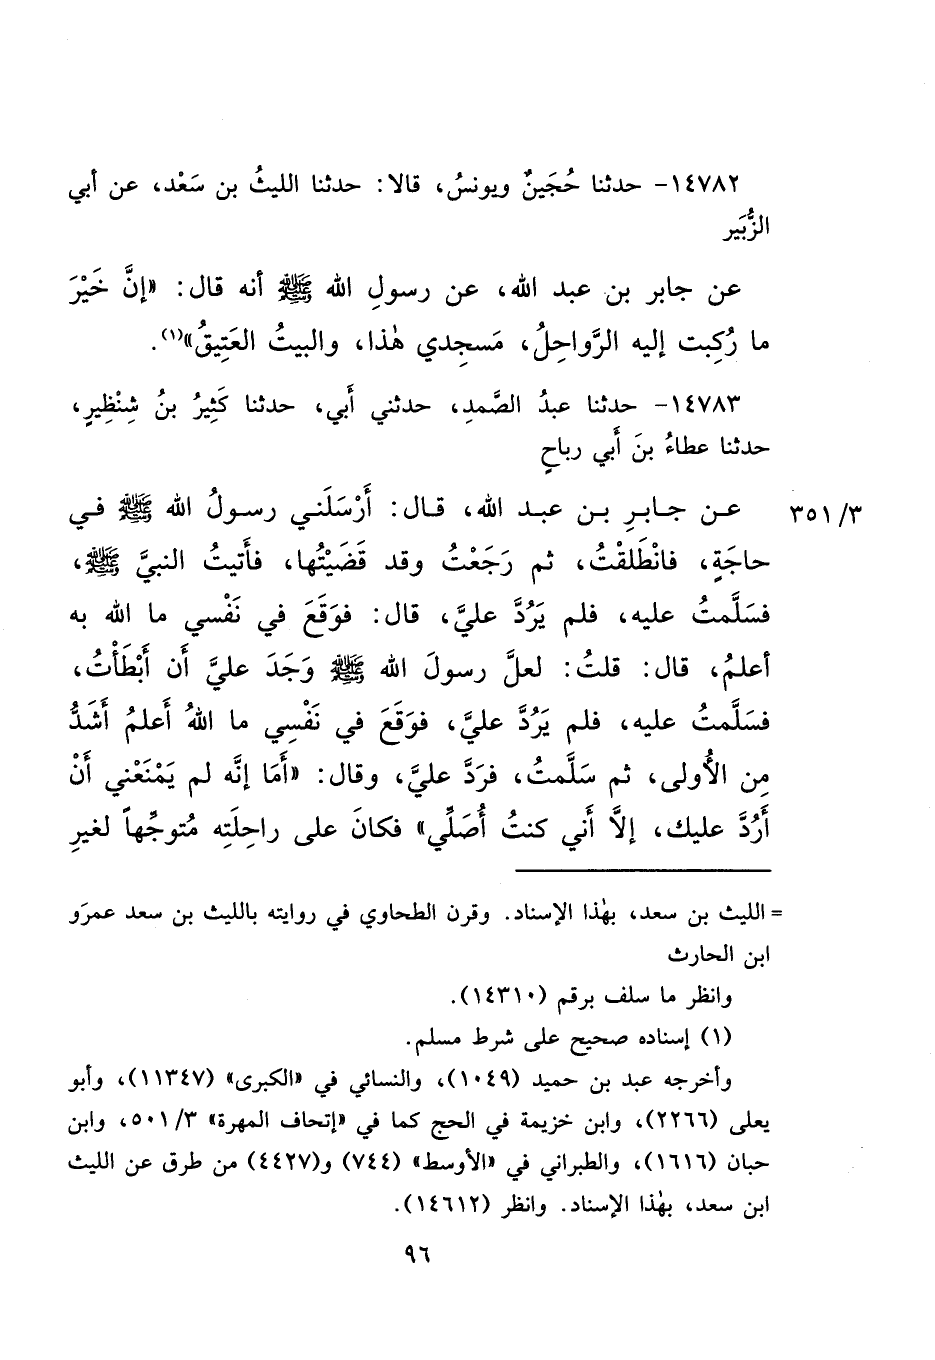 ١٤٧٨٢- حدثنا حُجَينٌ ويونسُ، قالا: حدثنا الليثُ بن سَعْد، عن أبي
الزُّبَير
عن جابر بن عبد الله، عن رسولِ الله ﷺ أنه قال: «إنَّ خَيْرَ
ما رُكِبت إليه الرَّواحِلُ، مَسجِدي هٰذا، والبيتُ العَتِيقُ»(١).
١٤٧٨٣- حدثنا عبدُ الصَّمدِ، حدثني أَبي، حدثنا كَثِيرُ بنُ شِنْظِيرٍ،
حدثنا عطاءُ بنَ أَبي رباحٍ
عن جابرِ بن عبد الله، قال: أَرْسَلَني رسولُ الله ﷺ في
٣٥١/٣
حاجَةٍ، فانْطَلقْتُ، ثم رَجَعْتُ وقد قَضَيْتُها، فأَتيتُ النبيَّ ﷺ،
فسَلَّمتُ عليه، فلم يَرُدَّ عليَّ، قال: فوَقَعَ في نَفْسي ما الله به
أعلمُ، قال: قلتُ: لعلَّ رسولَ الله ﷺ وَجَدَ عليَّ أَن أَبْطَأْتُ،
فسَلَّمتُ عليه، فلم يَرُدَّ عليَّ، فوَقَعَ في نَفْسِي ما اللهُ أَعلمُ أَشَدُّ
مِن الأُولى، ثم سَلَّمتُ، فرَدَّ عليَّ، وقال: «أَمَا إنَّه لم يَمْنَعْني أَنْ
أَرُدَّ عليك، إلاَّ أَني كنتُ أُصَلِّي» فكانَ على راحِلَتِه مُتوجِّهاً لغيرِ
= الليث بن سعد، بهٰذا الإسناد. وقرن الطحاوي في روايته بالليث بن سعد عمرَو
ابن الحارث
وانظر ما سلف برقم (١٤٣١٠).
(١) إسناده صحيح على شرط مسلم.
وأخرجه عبد بن حميد (١٠٤٩)، والنسائي في «الكبرى» (١١٣٤٧)، وأبو
يعلى (٢٢٦٦)، وابن خزيمة في الحج كما في «إتحاف المهرة» ٥٠١/٣، وابن
حبان (١٦١٦)، والطبراني في «الأوسط» (٧٤٤) و(٤٤٢٧) من طرق عن الليث
ابن سعد، بهٰذا الإسناد. وانظر (١٤٦١٢).
٩٦